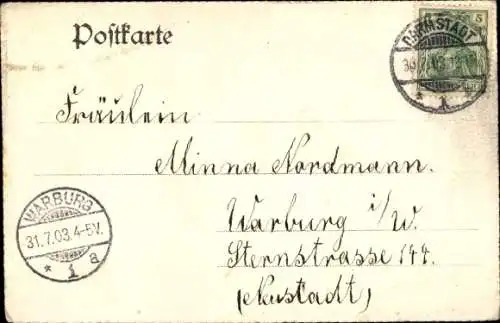 Postkarte
5
DARMSTADT
30.7.03
* 1 *
Fräulein
Minna Nordmann.
Warburg i/W.
Sternstrasse 144
(Neustadt)
WARBURG
31.7.03.4-5V.
* 1 a